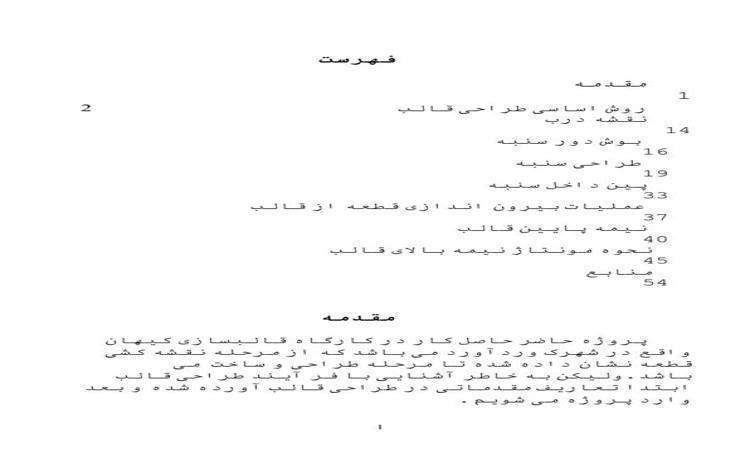 فهرست
مقدمه
1
روش اساسی طراحی قالب 2
نقشه درب
14
بوش دور سنبه
16
طراحی سنبه
19
پین داخل سنبه
33
عملیات بیرون اندازی قطعه از قالب
37
نیمه پایین قالب
40
نحوه مونتاژ نیمه بالای قالب
45
منابع
54
مقدمه
پروژه حاضر حاصل کار در کارگاه قالبسازی کیهان
واقع در شهرک ورد آورد می باشد که از مرحله نقشه کشی
قطعه نشان داده شده تا مرحله طراحی و ساخت می
باشد. ولیکن به خاطر آشنایی با فر آیند طراحی قالب
ابتدا تعاریف مقدماتی در طراحی قالب آورده شده و بعد
وارد پروژه می شویم.
1